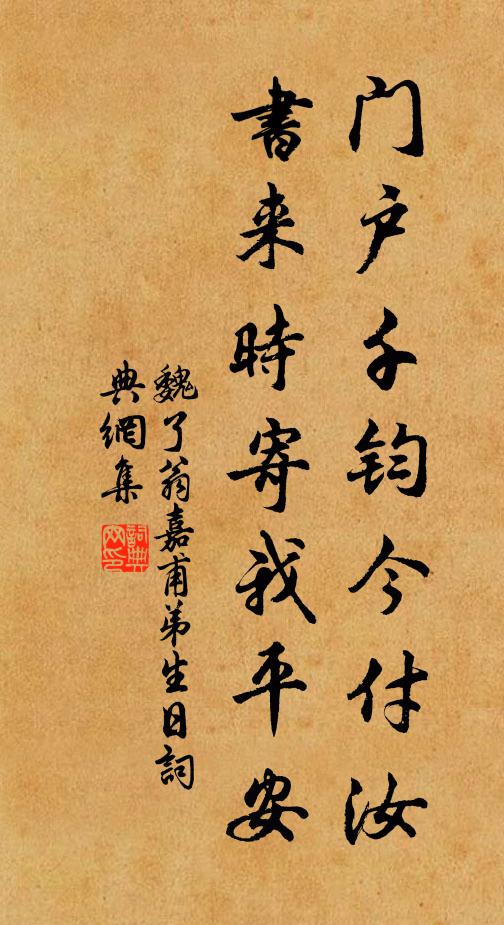 门户千钧今付汝
書来時寄我平安
魏了翁嘉甫弟生日詞
典網集
詞典网印